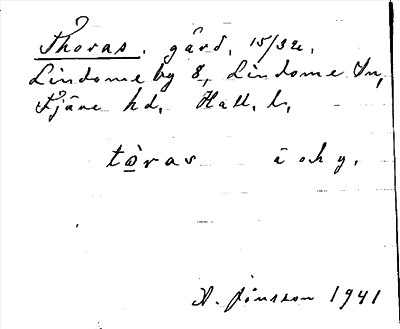 Thoras. gård, 15/32,
Lindome by 8, Lindome sn,
Fjäre hd, Hall. l.
tò̲ras ä och y.
A. Jonsson 1941